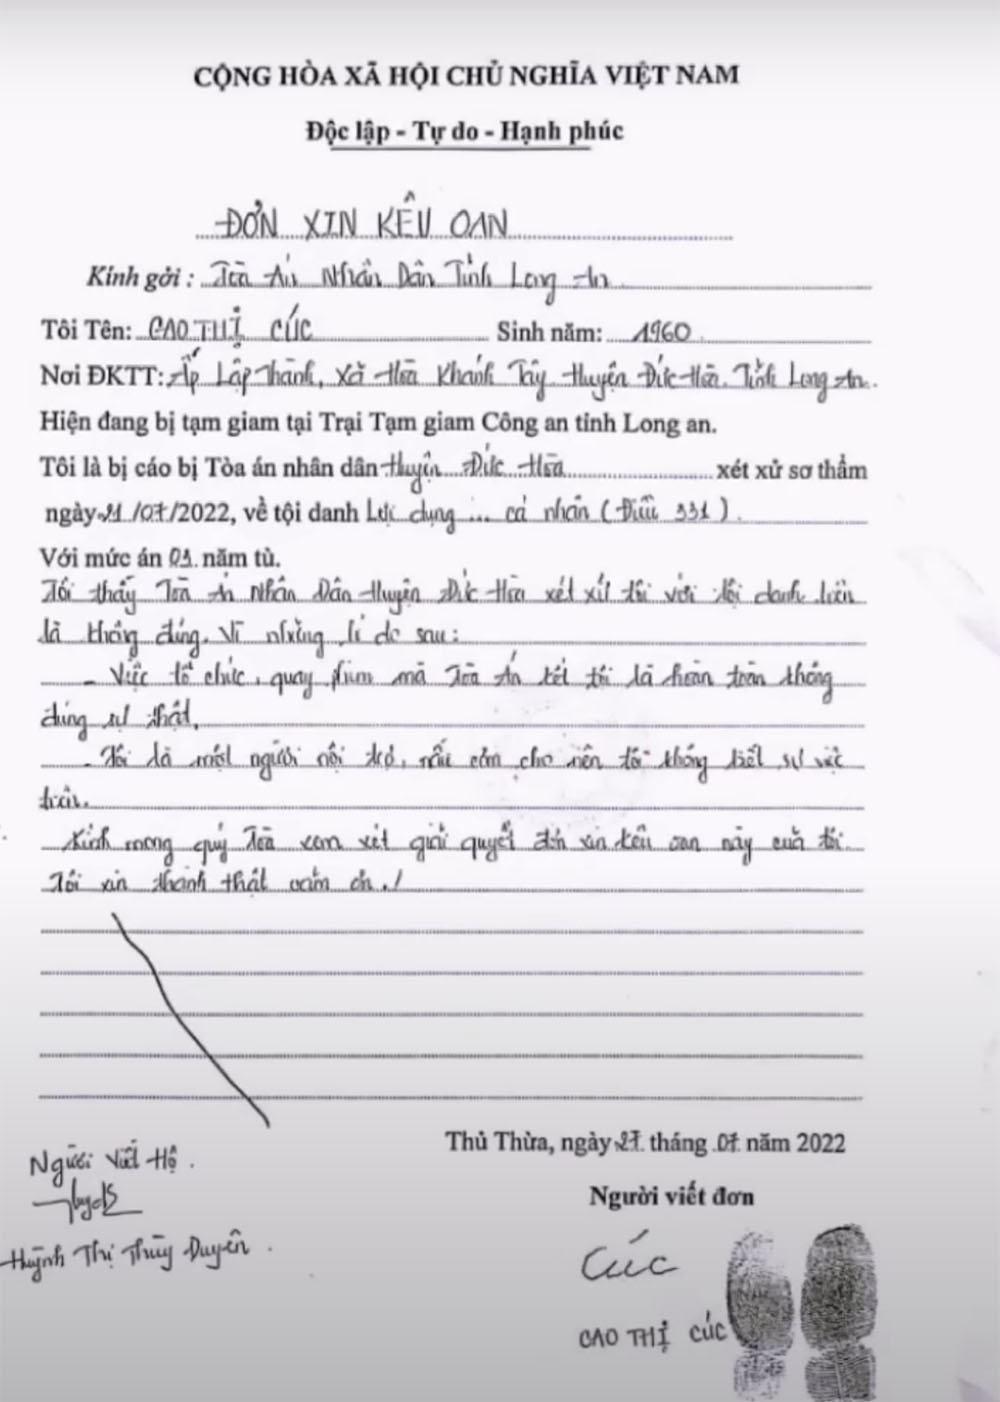 CỘNG HÒA XÃ HỘI CHỦ NGHĨA VIỆT NAM
Độc lập - Tự do - Hạnh phúc
ĐƠN XIN KÊU OAN
Kính gởi : Toà Án Nhân Dân Tỉnh Long An
Tôi Tên: CAO THỊ CÚC Sinh năm: 1960
Nơi ĐKTT: Ấp Lập Thành, Xã Hoà Khánh Tây Huyện Đức Hoà. Tỉnh Long An.
Hiện đang bị tạm giam tại Trại Tạm giam Công an tỉnh Long an.
Tôi là bị cáo bị Tòa án nhân dân Huyện Đức Hoà xét xử sơ thẩm
ngày 21/07/2022, về tội danh Lợi dụng ... cá nhân (Điều 331).
Với mức án 03 năm tù.
Tôi thấy Toà Án Nhân Dân Huyện Đức Hoà xét xử tôi với tội danh trên
là không đúng. Vì những lí do sau:
- Việc tổ chức, quay phim mà Toà Án kết tôi là hoàn toàn không
đúng sự thật.
- Tôi là một người nội trợ, nấu cơm cho nên tôi không biết sự việc
trên.
Kính mong quý Toà xem xét giải quyết đơn xin kêu oan này của tôi.
Tôi xin thành thật cám ơn./
Thủ Thừa, ngày 27 tháng 07 năm 2022
Người Viết Hộ.
Người viết đơn
Huỳnh Thị Thùy Duyên.
Cúc
CAO THỊ CÚC